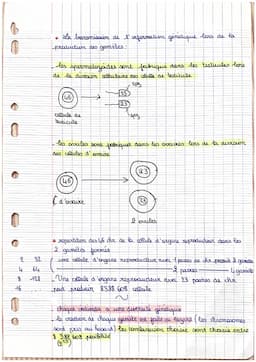 • La transmission de l'information génétique lors de la
production des gamètes :
- les spermatozoïdes sont fabriqués dans les testicules lors
de la division cellulaire des cellules de testicule
46
23
23
cellule de
testicule
- les ovules sont fabriqués dans les ovaires lors de la division
des cellules d'ovaire
46
23
23
d'ovaire
2 ovules
• répartition des 46 chr de la cellule d'organe reproducteur dans les
2 gamètes formés
une cellule d'organe reproducteur avec 1 paire de chr produit 2 gamètes
2 paires 4 gamètes
- Une cellule d'organe reproducteur avec 23 paires de chr
peut produire 8388 608 cellules
2 32
4 64
8 128
16
- chaque individu a une identité génétique
- la création de chaque gamète est faite au hasard (les chromosomes
sont pris au hasard) la combinaison choisie entre
8 388 608 possibilité